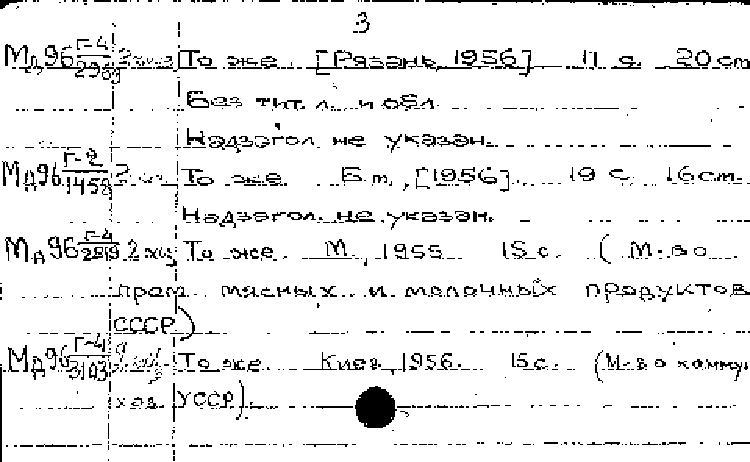 3
Мд96 Г-4/2969 2 экз. То же. [Рязань, 1956] 11 с. 20 см
Без тит. л. и обл.
Надзагол. не указан.
Мд96 Г-2/1458 То же. Б.м., [1956]. 19 с. 16 см.
Надзагол. не указан.
Мд96 Г-4/2819 2 экз. То же. М., 1955. 15 с. (М-во
пром. мясных и молочных продуктов
СССР)
Мд96 Г-4/3103 То же. Киев, 1956. 15 с. (М-во комму.
хоз. УССР).